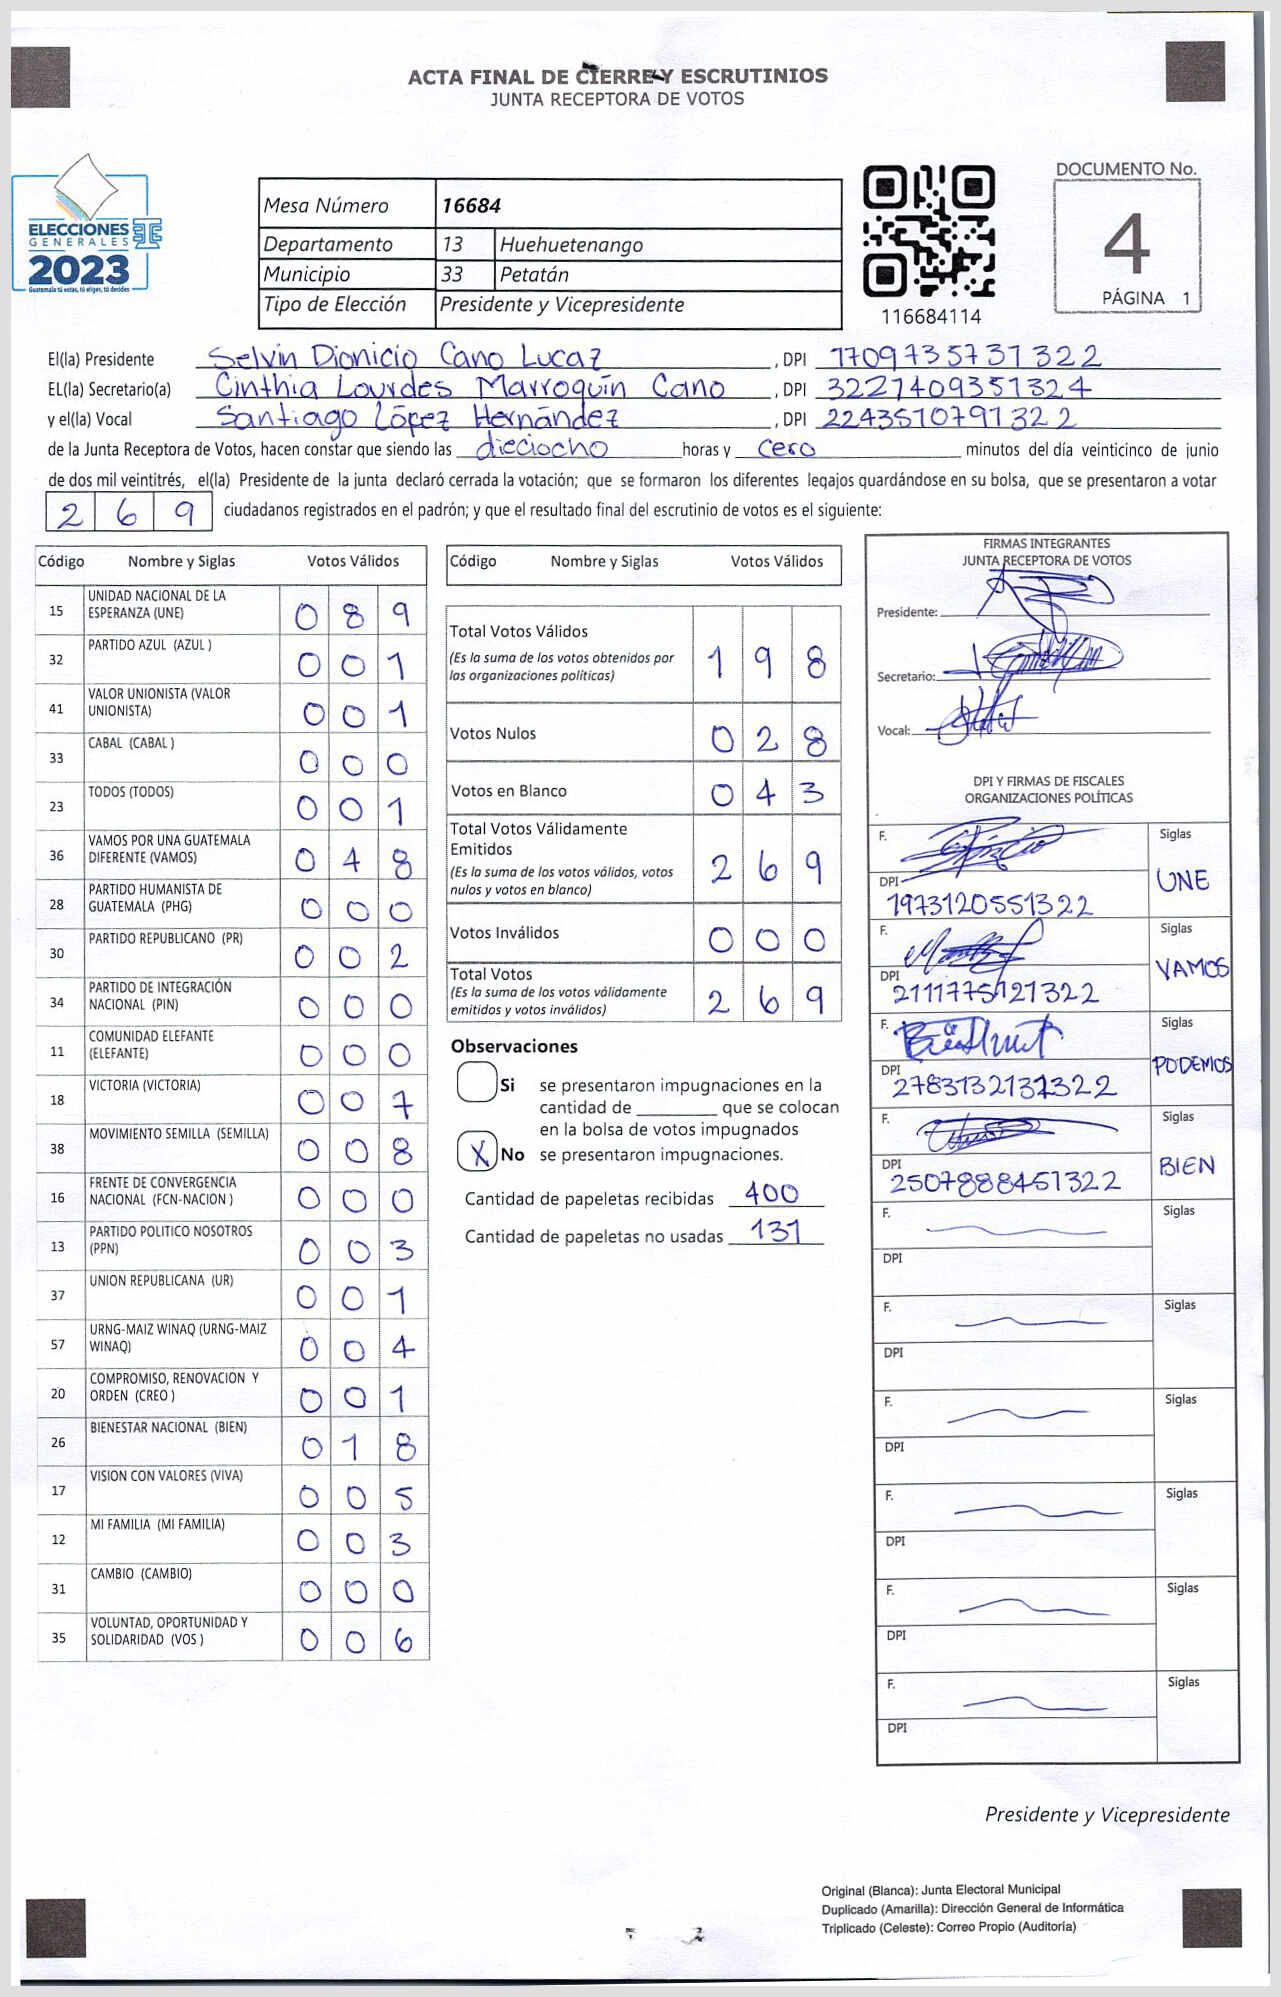 ACTA FINAL DE CIERRE Y ESCRUTINIOS
JUNTA RECEPTORA DE VOTOS
ELECCIONES
GENERALES
2023
Guatemala tú votas, tú eliges, tú decides
Mesa Número 16684
Departamento 13 Huehuetenango
Municipio 33 Petatán
Tipo de Elección Presidente y Vicepresidente
116684114
DOCUMENTO No.
4
PÁGINA 1
El(la) Presidente Selvin Dionicio Cano Lucaz , DPI 1709735731322
EL(la) Secretario(a) Cinthia Lourdes Marroquín Cano , DPI 32271409351324
y el(la) Vocal Santiago López Hernández , DPI 2243510791322
de la Junta Receptora de Votos, hacen constar que siendo las dieciocho horas y cero minutos del día veinticinco de junio
de dos mil veintitrés, el(la) Presidente de la junta declaró cerrada la votación; que se formaron los diferentes legajos guardándose en su bolsa, que se presentaron a votar
2 6 9 ciudadanos registrados en el padrón; y que el resultado final del escrutinio de votos es el siguiente:
Código Nombre y Siglas Votos Válidos
15 UNIDAD NACIONAL DE LA ESPERANZA (UNE) 0 8 9
32 PARTIDO AZUL (AZUL ) 0 0 1
41 VALOR UNIONISTA (VALOR UNIONISTA) 0 0 1
33 CABAL (CABAL ) 0 0 0
23 TODOS (TODOS) 0 0 1
36 VAMOS POR UNA GUATEMALA DIFERENTE (VAMOS) 0 4 8
28 PARTIDO HUMANISTA DE GUATEMALA (PHG) 0 0 0
30 PARTIDO REPUBLICANO (PR) 0 0 2
34 PARTIDO DE INTEGRACIÓN NACIONAL (PIN) 0 0 0
11 COMUNIDAD ELEFANTE (ELEFANTE) 0 0 0
18 VICTORIA (VICTORIA) 0 0 7
38 MOVIMIENTO SEMILLA (SEMILLA) 0 0 8
16 FRENTE DE CONVERGENCIA NACIONAL (FCN-NACION ) 0 0 0
13 PARTIDO POLITICO NOSOTROS (PPN) 0 0 3
37 UNION REPUBLICANA (UR) 0 0 1
57 URNG-MAIZ WINAQ (URNG-MAIZ WINAQ) 0 0 4
20 COMPROMISO, RENOVACION Y ORDEN (CREO ) 0 0 1
26 BIENESTAR NACIONAL (BIEN) 0 1 8
17 VISION CON VALORES (VIVA) 0 0 5
12 MI FAMILIA (MI FAMILIA) 0 0 3
31 CAMBIO (CAMBIO) 0 0 0
35 VOLUNTAD, OPORTUNIDAD Y SOLIDARIDAD (VOS ) 0 0 6
Código Nombre y Siglas Votos Válidos
Total Votos Válidos 1 9 8
(Es la suma de los votos obtenidos por
las organizaciones políticas)
Votos Nulos 0 2 8
Votos en Blanco 0 4 3
Total Votos Válidamente
Emitidos 2 6 9
(Es la suma de los votos válidos, votos
nulos y votos en blanco)
Votos Inválidos 0 0 0
Total Votos 2 6 9
(Es la suma de los votos válidamente
emitidos y votos inválidos)
Observaciones
Si se presentaron impugnaciones en la
cantidad de ________ que se colocan
en la bolsa de votos impugnados
X No se presentaron impugnaciones.
Cantidad de papeletas recibidas 400
Cantidad de papeletas no usadas 131
FIRMAS INTEGRANTES
JUNTA RECEPTORA DE VOTOS
Presidente:
Secretario:
Vocal:
DPI Y FIRMAS DE FISCALES
ORGANIZACIONES POLÍTICAS
F. Siglas
DPI UNE
1973120551322
F. Siglas
DPI VAMOS
2111775121322
F. Siglas
DPI PODEMOS
2783132131322
F. Siglas
DPI BIEN
2507888451322
F. Siglas
DPI
F. Siglas
DPI
F. Siglas
DPI
F. Siglas
DPI
F. Siglas
DPI
F. Siglas
DPI
Presidente y Vicepresidente
Original (Blanca): Junta Electoral Municipal
Duplicado (Amarilla): Dirección General de Informática
Triplicado (Celeste): Correo Propio (Auditoría)